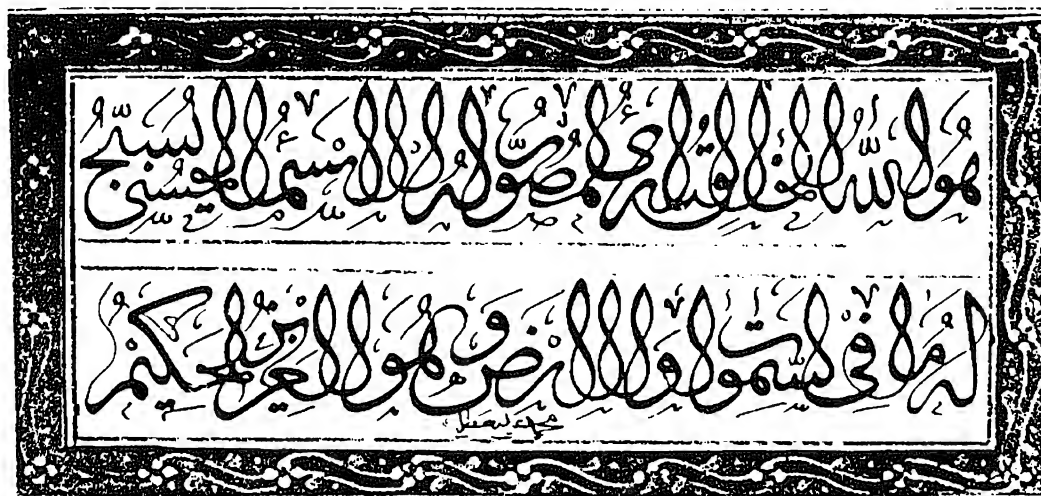 هو الله الخالق البارئ المصور له الاسماء الحسنى يسبح
له ما في السموات والارض وهو العزيز الحكيم